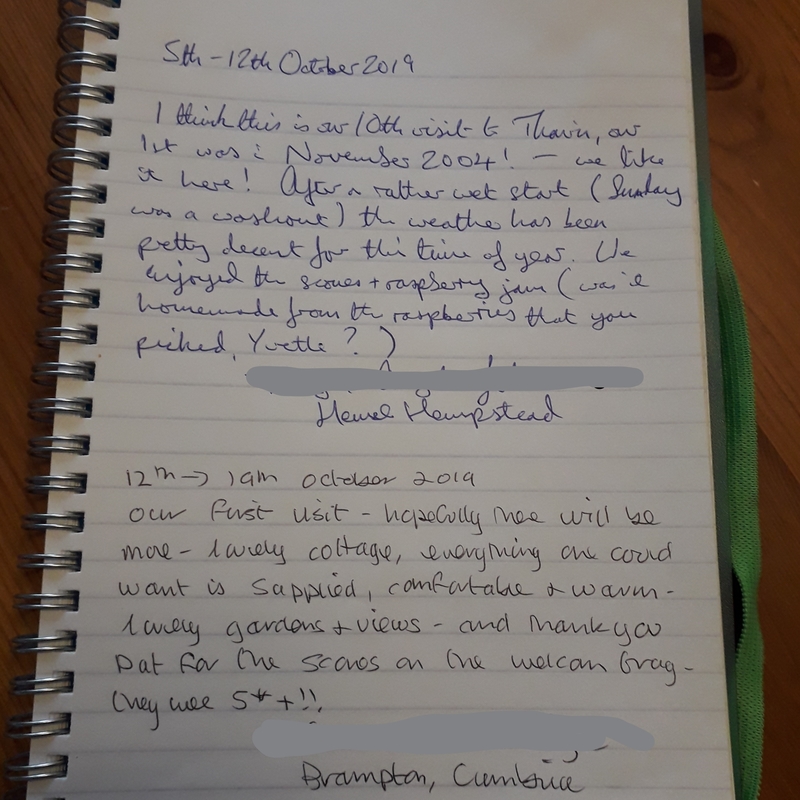 5th - 12th October 2019
I think this is our 10th visit to Thavin, our
1st was i November 2004! - we like
it here! After a rather wet start (Sunday
was a washout) the weather has been
pretty decent for this time of year. We
enjoyed the scones + raspberry jam (was it
homemade from the raspberries that you
picked, Yvette?)
Hemel Hempstead
12th -> 19th October 2019
our first visit - hopefully there will be
more - lovely cottage, everything one could
want is supplied, comfortable + warm -
lovely gardens + views - and thank you
Pat for the scones on the welcom tray -
they wee 5* + !!
Brampton, Cumbria